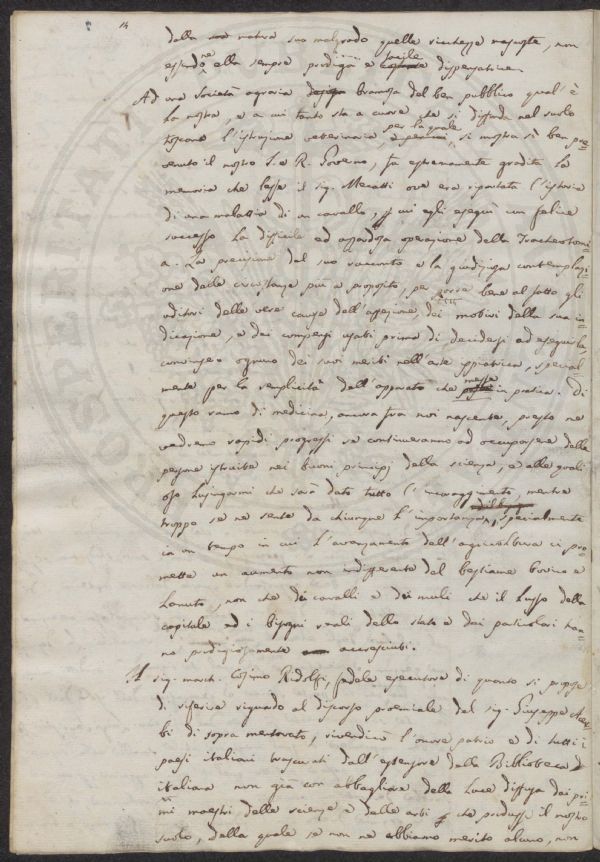 14
della sua natura suo malgrado quelle ricchezze nascoste, non
essendone ella sempre prodiga e facile dispensatrice.
Ad una Società agraria bramosa del ben pubblico qual'è
la nostra, e a cui tanto sta a cuore che si diffonda nel suolo
toscano l'istruzione veterinaria, per la quale si mostra sì ben pre-
venuto il nostro I. e R. Governo, fu estremamente gradita la
memoria che lesse il sig. Mecatti ove era riportata l'istoria
di una malattia di un cavallo, su cui egli eseguì con felice
successo la difficile ed azzardosa operazione della Tracheotomi-
a. La precisione del suo racconto e la giudiziosa contemplazi-
one delle circostanze più a proposito, per porre bene al fatto gli
uditori delle vere cause dell'affezione, dei motivi della sua in-
dicazione, e dei compensi usati prima di decidersi ad eseguirla,
convinsero ognuno dei suoi meriti nell'arte ippiatrica, special
mente per la semplicità dell'apparato che messe in pratica. Di
questo ramo di medicina, ancora fra noi nascente, presto ne
vedremo rapidi progressi se continueranno ad occuparsene delle
persone istruite nei buoni principj della scienza, e alle quali
oso lusingarmi che sarà dato tutto l'incoraggimento, mentre
troppo se ne sente da chiunque l'importanza, specialmente
in un tempo in cui l'avanzamento dell'agricoltura ci pro-
mette un aumento non indifferente del bestiame bovino e
lanuto, non che dei cavalli e dei muli che il lusso della
capitale ed i bisogni reali dello stato e dei particolari han-
no prodigiosamente accresciuti.
Il sig. march. Cosimo Ridolfi, fedele esecutore di quanto si propose
di riferire riguardo al discorso proemiale del sig. Giuseppe Acer-
bi di sopra mentovato, rivendicò l'onore patrio e di tutti i
paesi italiani trascurati dall'estensore della Biblioteca
italiana non già con abbagliare della luce diffusa dai pri-
mi maestri delle scienze e delle arti che produsse il nostro
suolo, della quale se non ne abbiamo merito alcuno, non